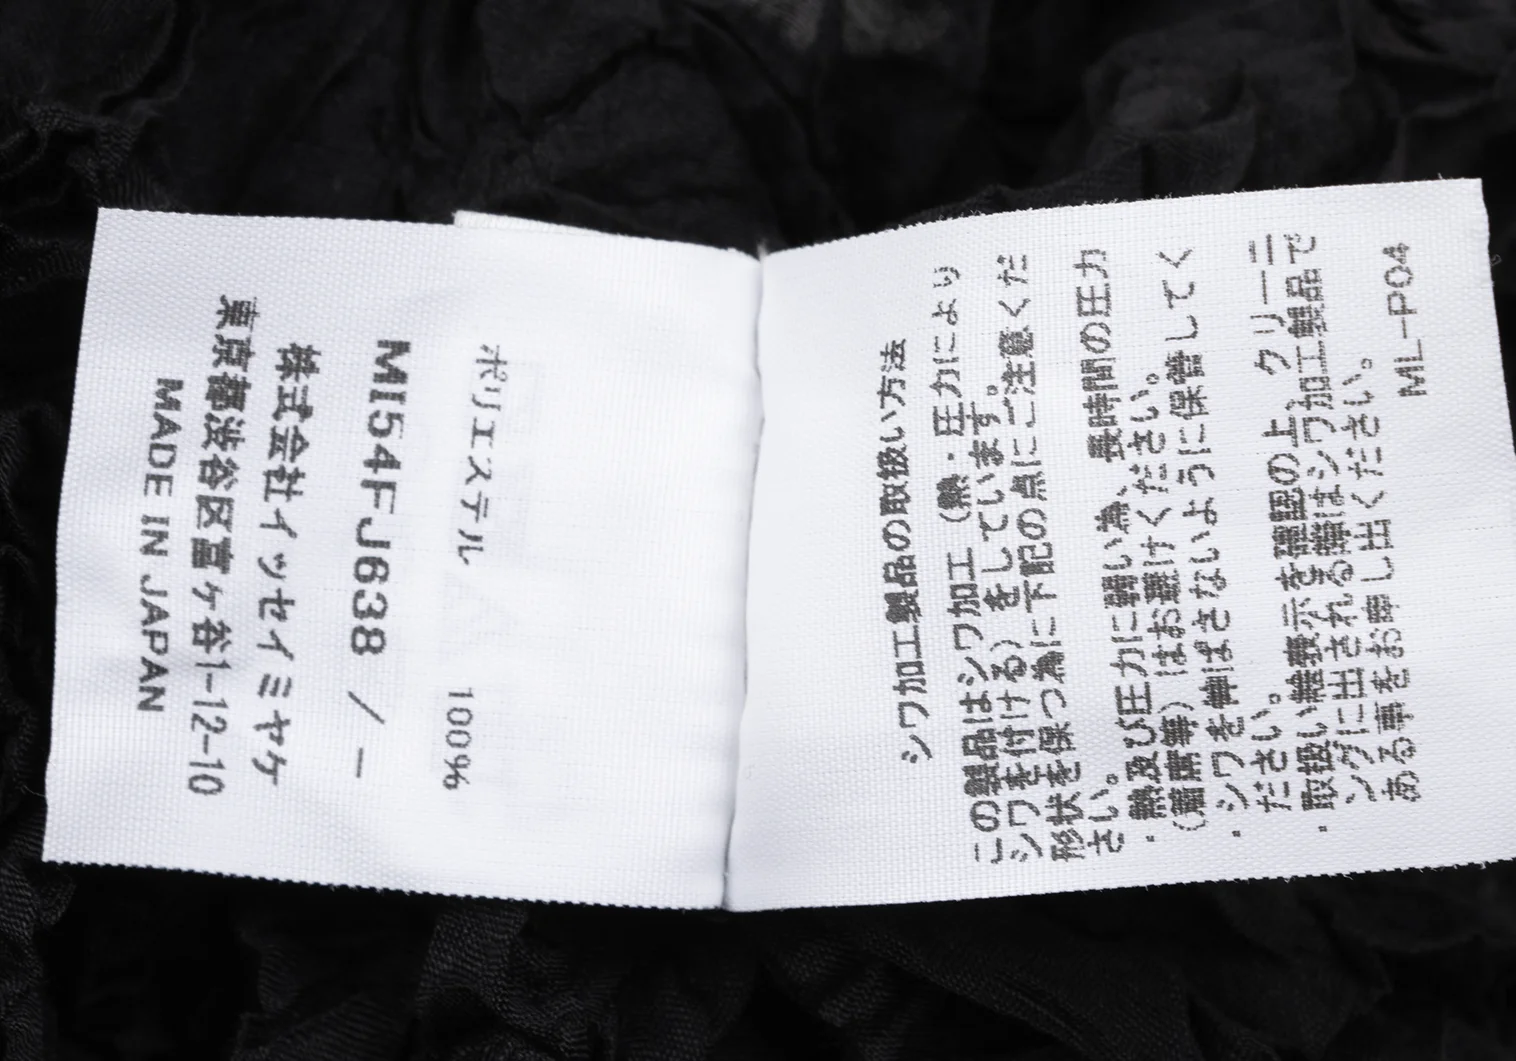 ポリエステル 100%
MI54FJ638 / -
株式会社イッセイミヤケ
東京都渋谷区富ヶ谷1-12-10
MADE IN JAPAN
シワ加工製品の取扱い方法
この製品はシワ加工(熱・圧力により
シワを付ける)をしています。
形状を保つ為に下記の点にご注意くだ
さい。
・熱及び圧力に弱い為、長時間の圧力
(着席等)はお避けください。
・シワを伸ばさないように保管してく
ださい。
・取扱い絵表示を確認の上、クリーニ
ングに出される際はシワ加工製品で
ある事をお申し出ください。
ML-P04